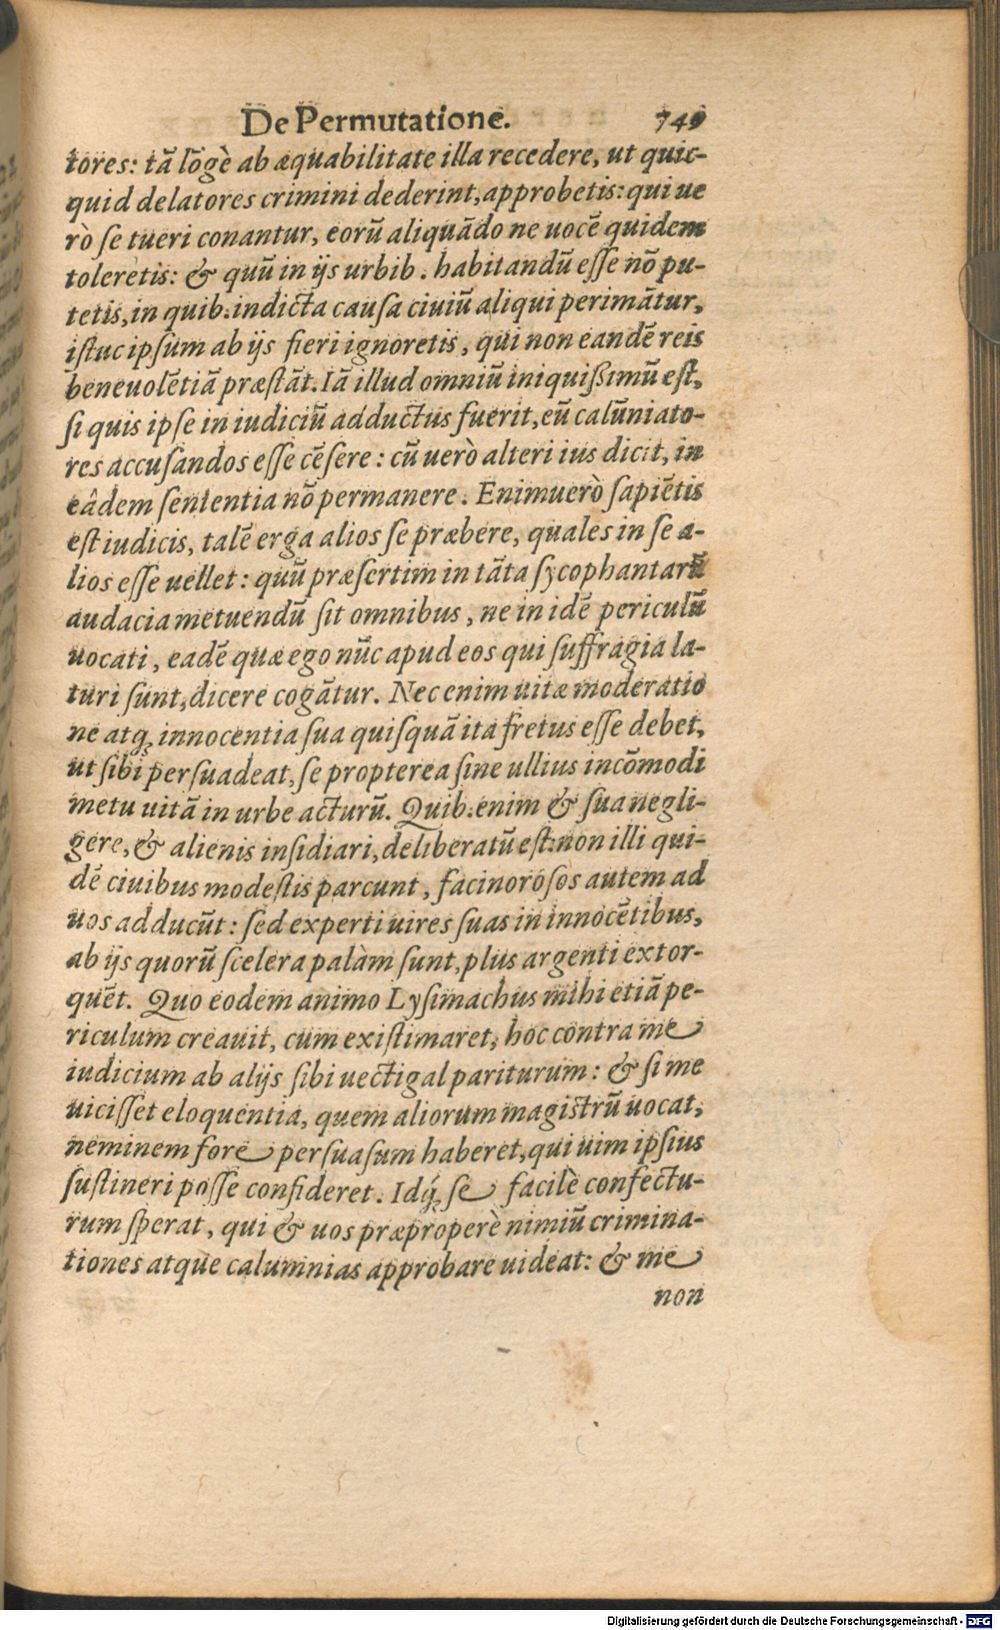 De Permutatione. 749
tores: tã lõgè ab æquabilitate illa recedere, ut quic-
quid delatores crimini dederint, approbetis: qui ue
rò ſe tueri conantur, eorũ aliquãdo ne uocẽ quidem
toleretis: & quũ in ijs urbib. habitandũ eſſe nõ pu-
tetis, in quib. indicta cauſa ciuiũ aliqui perimãtur,
iſtuc ipſum ab ijs fieri ignoretis, qui non eandẽ reis
beneuolẽtiã præſtãt. Iã illud omniũ iniquißimũ eſt,
ſi quis ipſe in iudiciũ adductus fuerit, eũ calũniato-
res accuſandos eſſe cẽſere: cũ uerò alteri ius dicit, in
eâdem ſententia nõ permanere. Enimuerò ſapiẽtis
eſt iudicis, talẽ erga alios ſe præbere, quales in ſe a-
lios eſſe uellet: quũ præſertim in tãta ſycophantarũ
audacia metuendũ ſit omnibus, ne in idẽ periculũ
uocati, eadẽ quæ ego nũc apud eos qui ſuffragia la-
turi ſunt, dicere cogãtur. Nec enim uitæ moderatio
ne atq; innocentia ſua quiſquã ita fretus eſſe debet,
ut ſibi perſuadeat, ſe propterea ſine ullius incõmodi
metu uitã in urbe acturũ. Quib. enim & ſua negli-
gere, & alienis inſidiari, deliberatũ eſt: non illi qui-
dẽ ciuibus modeſtis parcunt, facinoroſos autem ad
uos adducũt: ſed experti uires ſuas in innocẽtibus,
ab ijs quorũ ſcelera palàm ſunt, plus argenti extor-
quẽt. Quo eodem animo Lyſimachus mihi etiã pe-
riculum creauit, cum exiſtimaret, hoc contra me
iudicium ab alijs ſibi uectigal pariturum: & ſi me
uiciſſet eloquentia, quem aliorum magiſtrũ uocat,
neminem fore perſuaſum haberet, qui uim ipſius
ſuſtineri poſſe confideret. Idq́; ſe facilè confectu-
rum ſperat, qui & uos præproperè nimiũ crimina-
tiones atque calumnias approbare uideat: & me
non
Digitalisierung gefördert durch die Deutsche Forschungsgemeinschaft - DFG